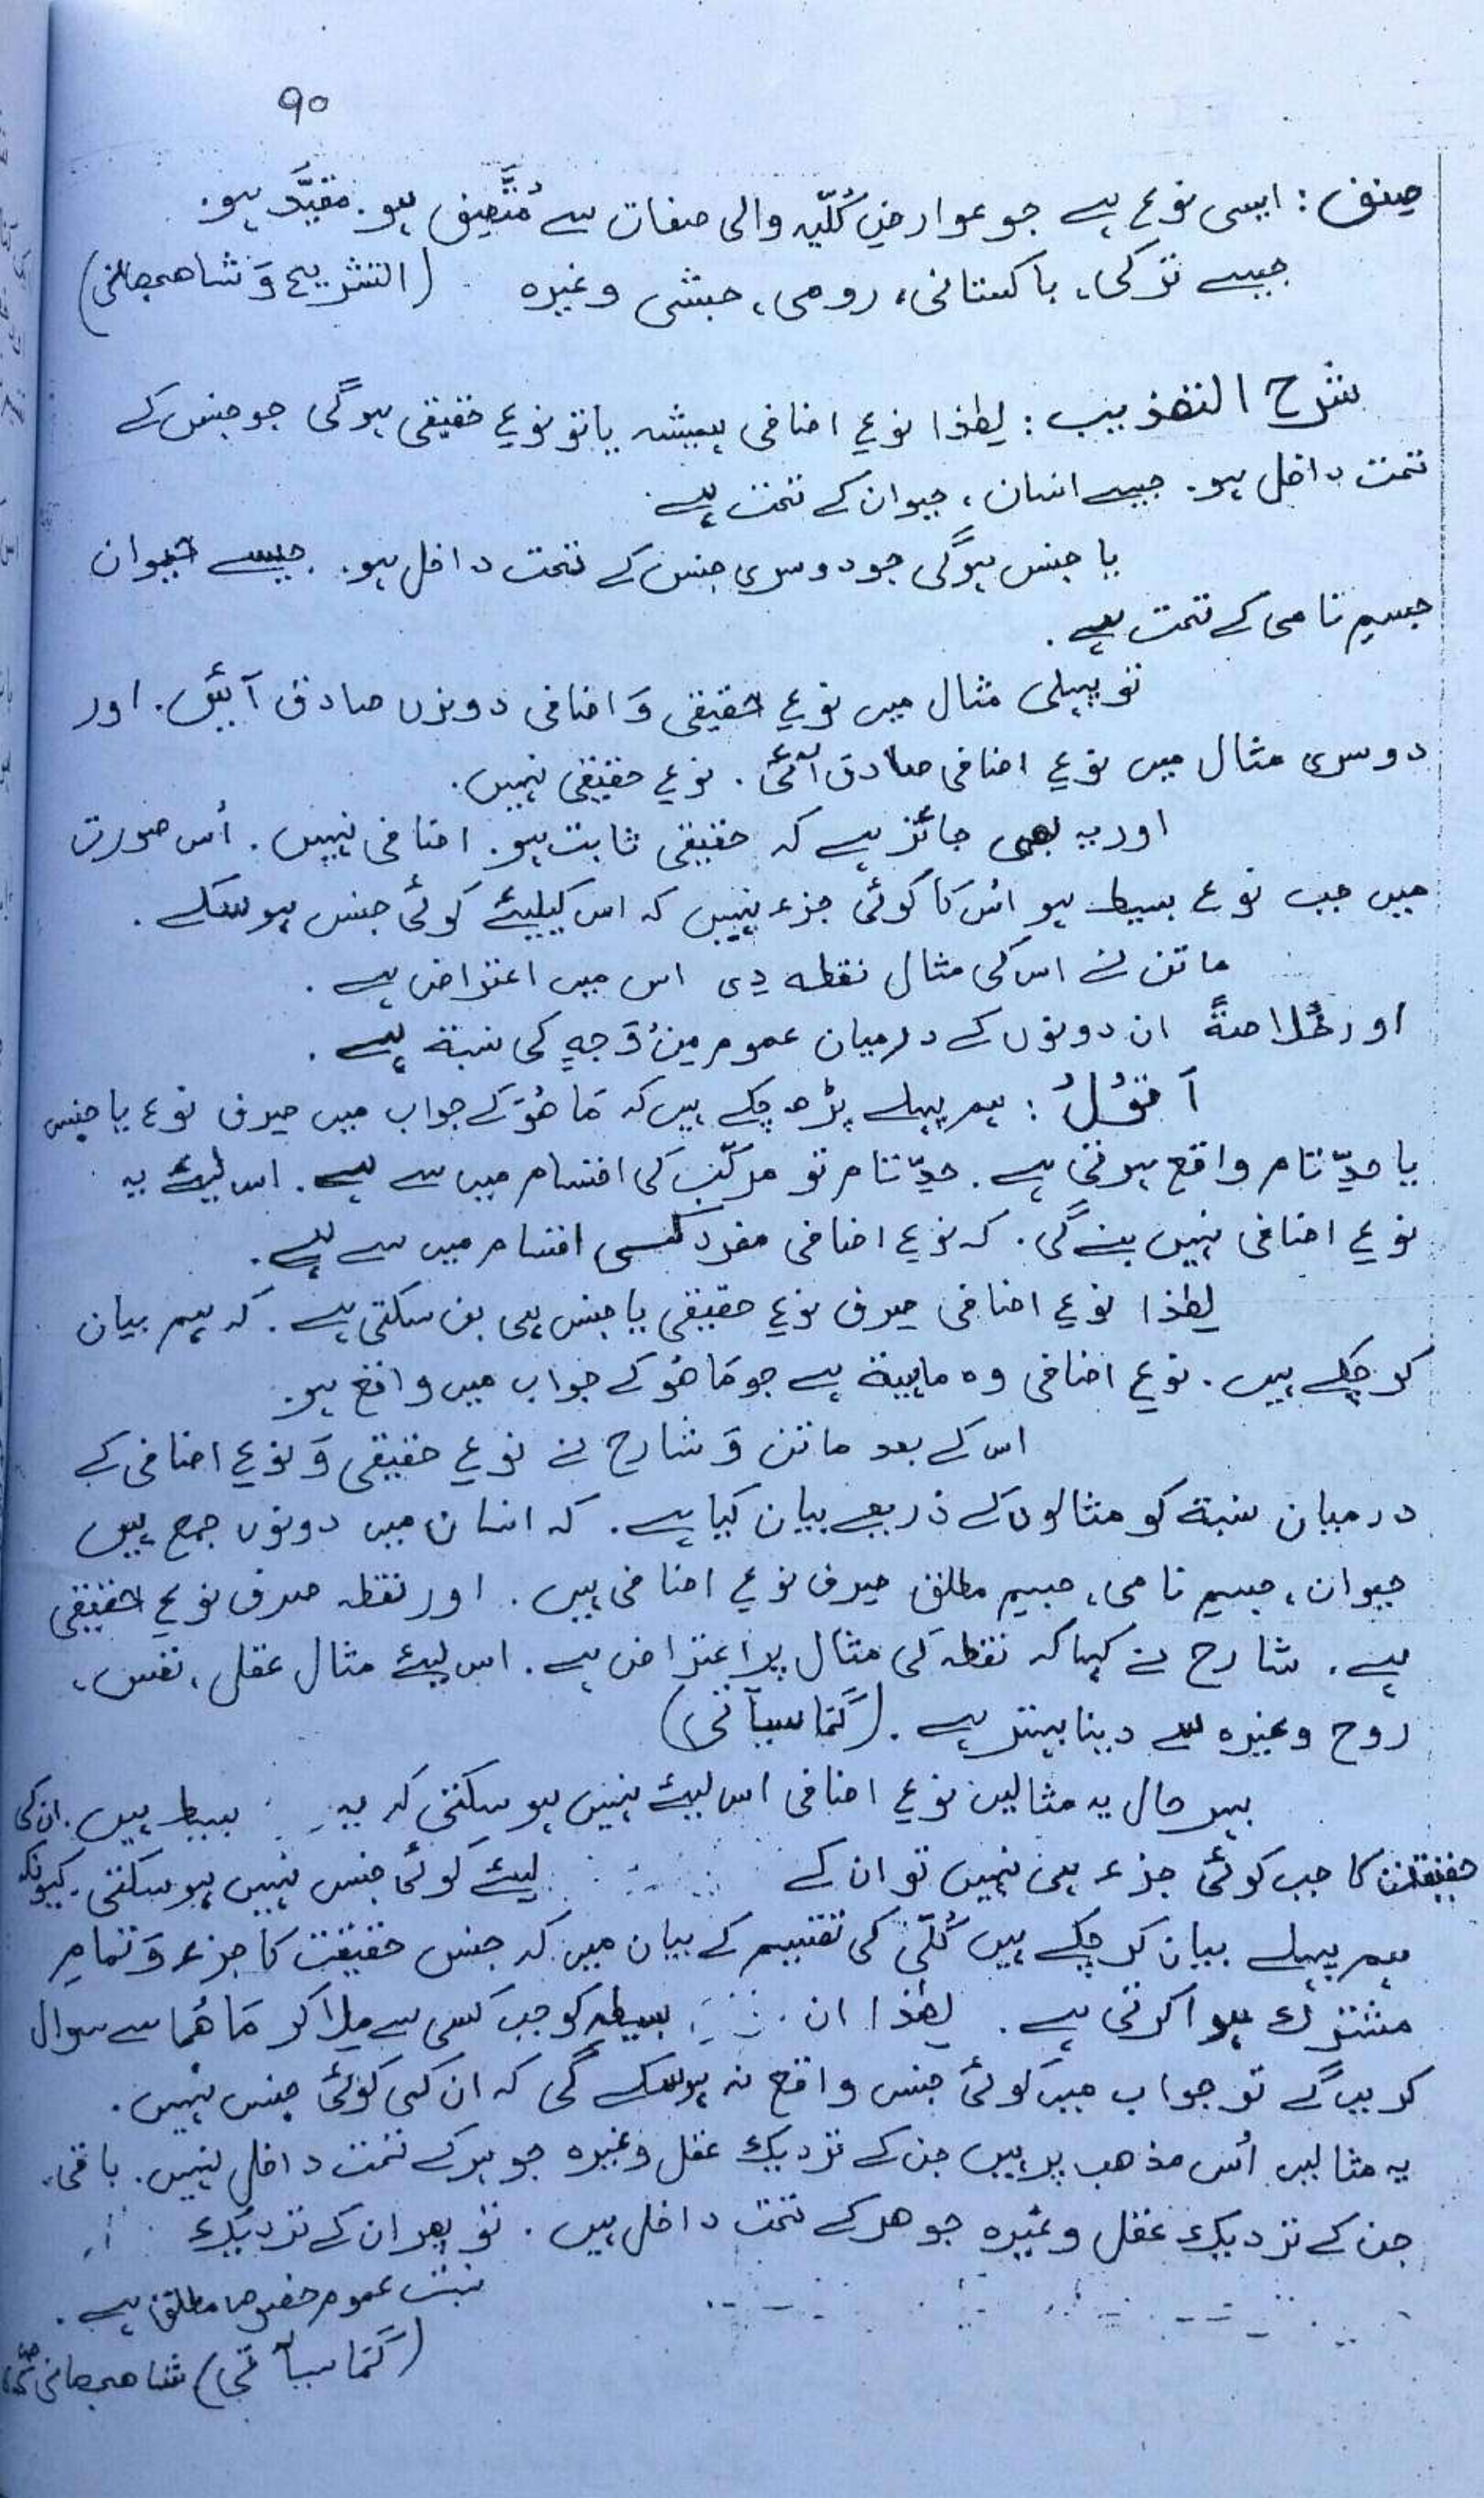 ۹۰
صِنف : ایسی نوع ہے جو عوارضِ کُلّیہ والی صفات سے مُتَّصِف ہو۔ مقیَّد ہو۔
جیسے ترکی، پاکستانی، رومی، حبشی وغیرہ (التشریح وَ شاھجھانی)
شرح التھذیب : لھٰذا نوعِ اضافی ہمیشہ یا تو نوعِ حقیقی ہوگی جو جنس کے
تحت داخل ہو۔ جیسے انسان، حیوان کے تحت ہے۔
یا جنس ہوگی جو دوسری جنس کے تحت داخل ہو۔ جیسے حیوان
جسمِ نامی کے تحت ہے۔
تو پہلی مثال میں نوعِ حقیقی وَ اضافی دونوں صادق آئیں۔ اور
دوسری مثال میں نوعِ اضافی صادق آئی۔ نوعِ حقیقی نہیں۔
اور یہ بھی جائز ہے کہ حقیقی ثابت ہو۔ اضافی نہیں۔ اُس صورت
میں جب نوع بسیط ہو اُس کا کوئی جزء نہیں کہ اس کیلیئے کوئی جنس ہوسکے۔
ماتن نے اس کی مثال نقطہ دِی اس میں اعتراض ہے۔
اور خُلاصۃً ان دونوں کے درمیان عموم مِنْ وَجہٍ کی نسبۃ ہے۔
اَقُوْلُ : ہم پہلے پڑھ چکے ہیں کہ مَا ھُوَ کے جواب میں صِرف نوع یا جنس
یا حدِّ تام واقع ہوتی ہے۔ حدِّ تام تو مرکّب کی اقسام میں سے ہے۔ اس لیئے یہ
نوعِ اضافی نہیں بنے گی۔ کہ نوعِ اضافی مفرد کسی اقسام میں سے ہے۔
لھٰذا نوعِ اضافی صِرف نوعِ حقیقی یا جنس ہی بن سکتی ہے۔ کہ ہم بیان
کر چکے ہیں۔ نوعِ اضافی وہ ماہیۃ ہے جو مَا ھُوَ کے جواب میں واقع ہو۔
اس کے بعد ماتن وَ شارح نے نوعِ حقیقی وَ نوعِ اضافی کے
درمیان نسبۃ کو مثالوں کے ذریعے بیان کیا ہے۔ کہ انسان میں دونوں جمع ہیں
حیوان، جسمِ نامی، جسمِ مطلق صِرف نوعِ اضافی ہیں۔ اور نقطہ صرف نوعِ حقیقی
ہے۔ شارح نے کہا کہ نقطہ کی مثال پر اعتراض ہے۔ اس لیئے مثال عقل، نفس،
روح وغیرہ سے دینا بہتر ہے۔ (کَمَا سیآتی)
بہر حال یہ مثالیں نوعِ اضافی اس لیئے نہیں ہو سکتی کہ یہ بسیط ہیں۔ ان کی
حقیقت کا جب کوئی جزء ہی نہیں تو ان کے لیئے کوئی جنس نہیں ہوسکتی۔ کیونکہ
ہم پہلے بیان کر چکے ہیں کُلّی کی تقسیم کے بیان میں کہ جنس حقیقت کا جزء وَ تمامِ
مشترک ہوا کرتی ہے۔ لھٰذا ان بسیطہ کو جب کسی سے مِلا کر مَا ھُمَا سے سوال
کریں گے تو جواب میں کوئی جنس واقع نہ ہوسکے گی کہ ان کی کوئی جنس نہیں۔
یہ مثالیں اُس مذھب پر ہیں جن کے نزدیک عقل وغیرہ جوہر کے تحت داخل نہیں۔ باقی
جن کے نزدیک عقل وغیرہ جوھر کے تحت داخل ہیں۔ تو پھر ان کے نزدیک
نسبت عموم خصوص مطلق ہے۔
(کَمَا سیآتی) شاھجھانی